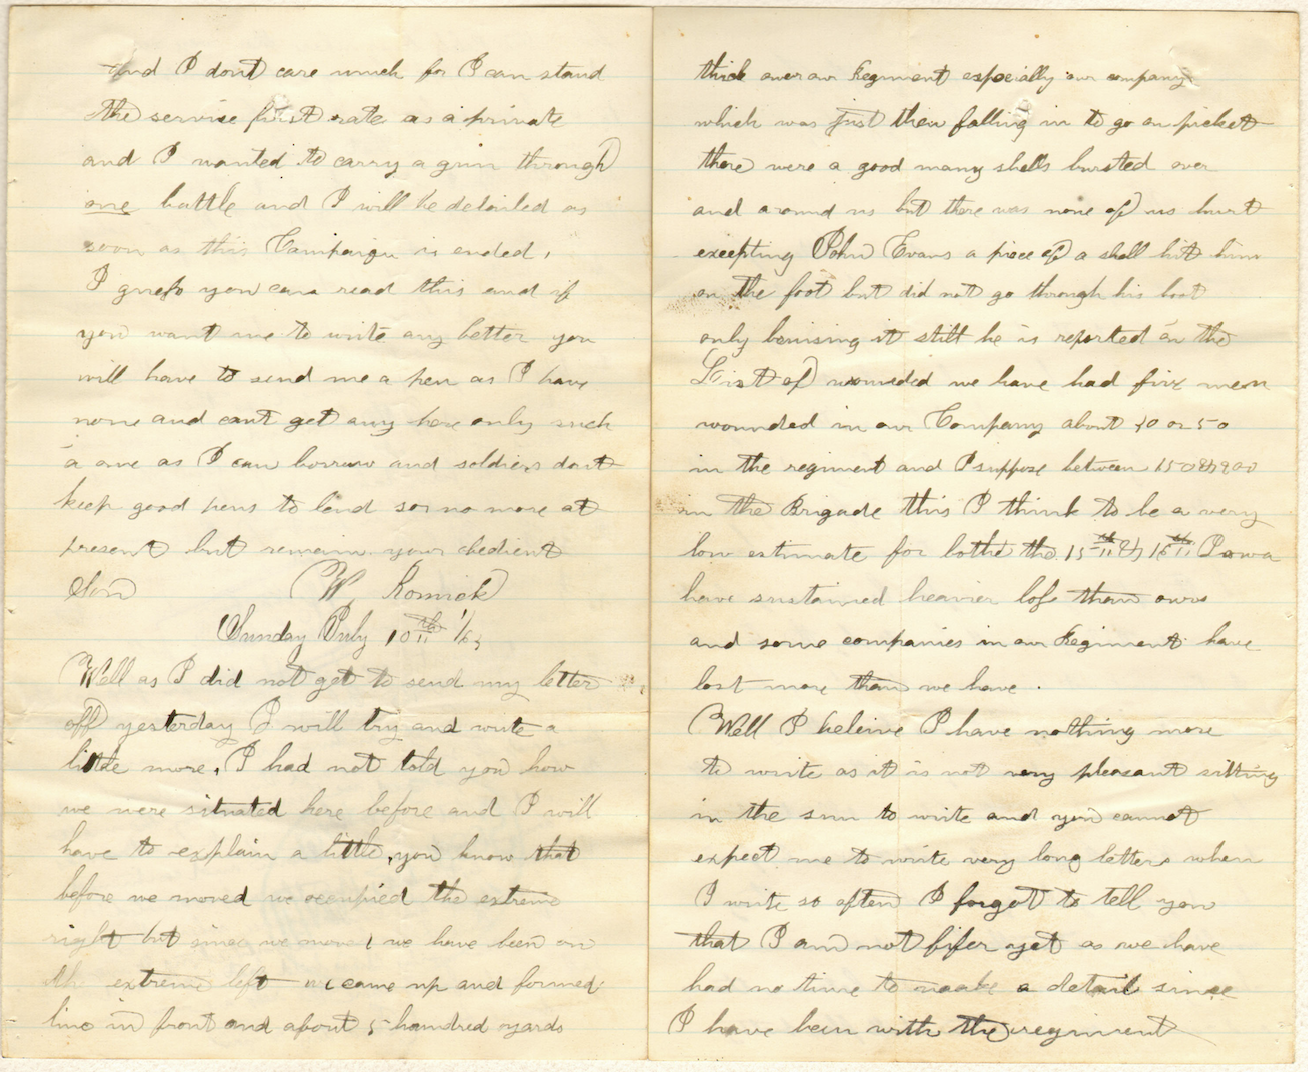 and I dont care much for I can stand
the service first rate as a private
and I wanted to carry a gun through
one battle and I will be detailed as
soon as this Campaign is ended,
I guess you can read this and if
you want me to write any better you
will have to send me a pen as I have
none and cant get any here only such
a one as I can borrow and soldiers dont
keep good pens to lend so no more at
present but remain your obedient
Son W Romick
Sunday July 10th
Well as I did not get to send my letter
off yesterday I will try and write a
little more, I had not told you how
we were situated here before and I will
have to explain a little, you know that
before we moved we occupied the extreme
right but since we move we have been on
the extreme left we came up and formed
line in front and about 5 hundred yards
thick over our Regiment especially our company
which was just then falling in to go on picket
there were a good many shells bursted over
and around us but there was none of us hurt
excepting John Evans a piece of a shell hit him
on the foot but did not go through his boot
only bruising it still he is reported in the
List of wounded we have had five men
wounded in our Company about 40 or 50
in the regiment and I suppose between 150 & 200
in the Brigade this I think to be a very
low estimate for bothe the 15th & 16th Iowa
have sustained heavier loss than ours
and some companies in our Regiment have
lost more than we have.
Well I beleive I have nothing more
to write as it is not very pleasant sitting
in the sun to write and you cannot
expect me to write very long letters when
I write so often I forgot to tell you
that I am not fifer yet as we have
had no time to make a detail since
I have been with the regiment